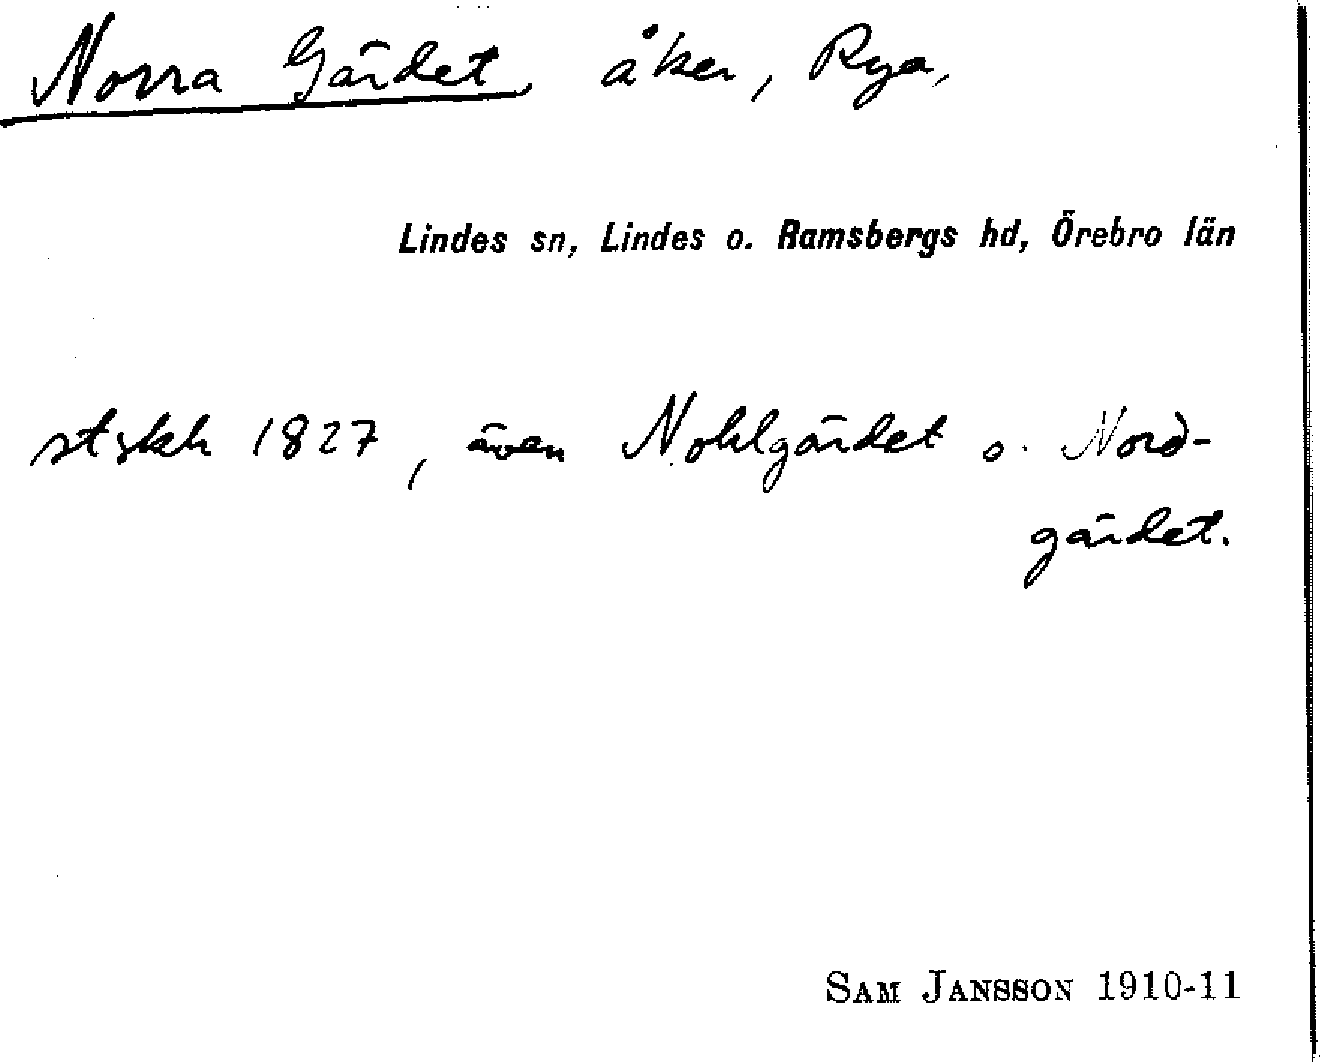 Norra Gärdet, åker, Rya,
Lindes sn, Lindes o. Ramsbergs hd, Örebro län
stskh 1827, även Nohlgärdet o. Nord-
gärdet.
SAM JANSSON 1910-11